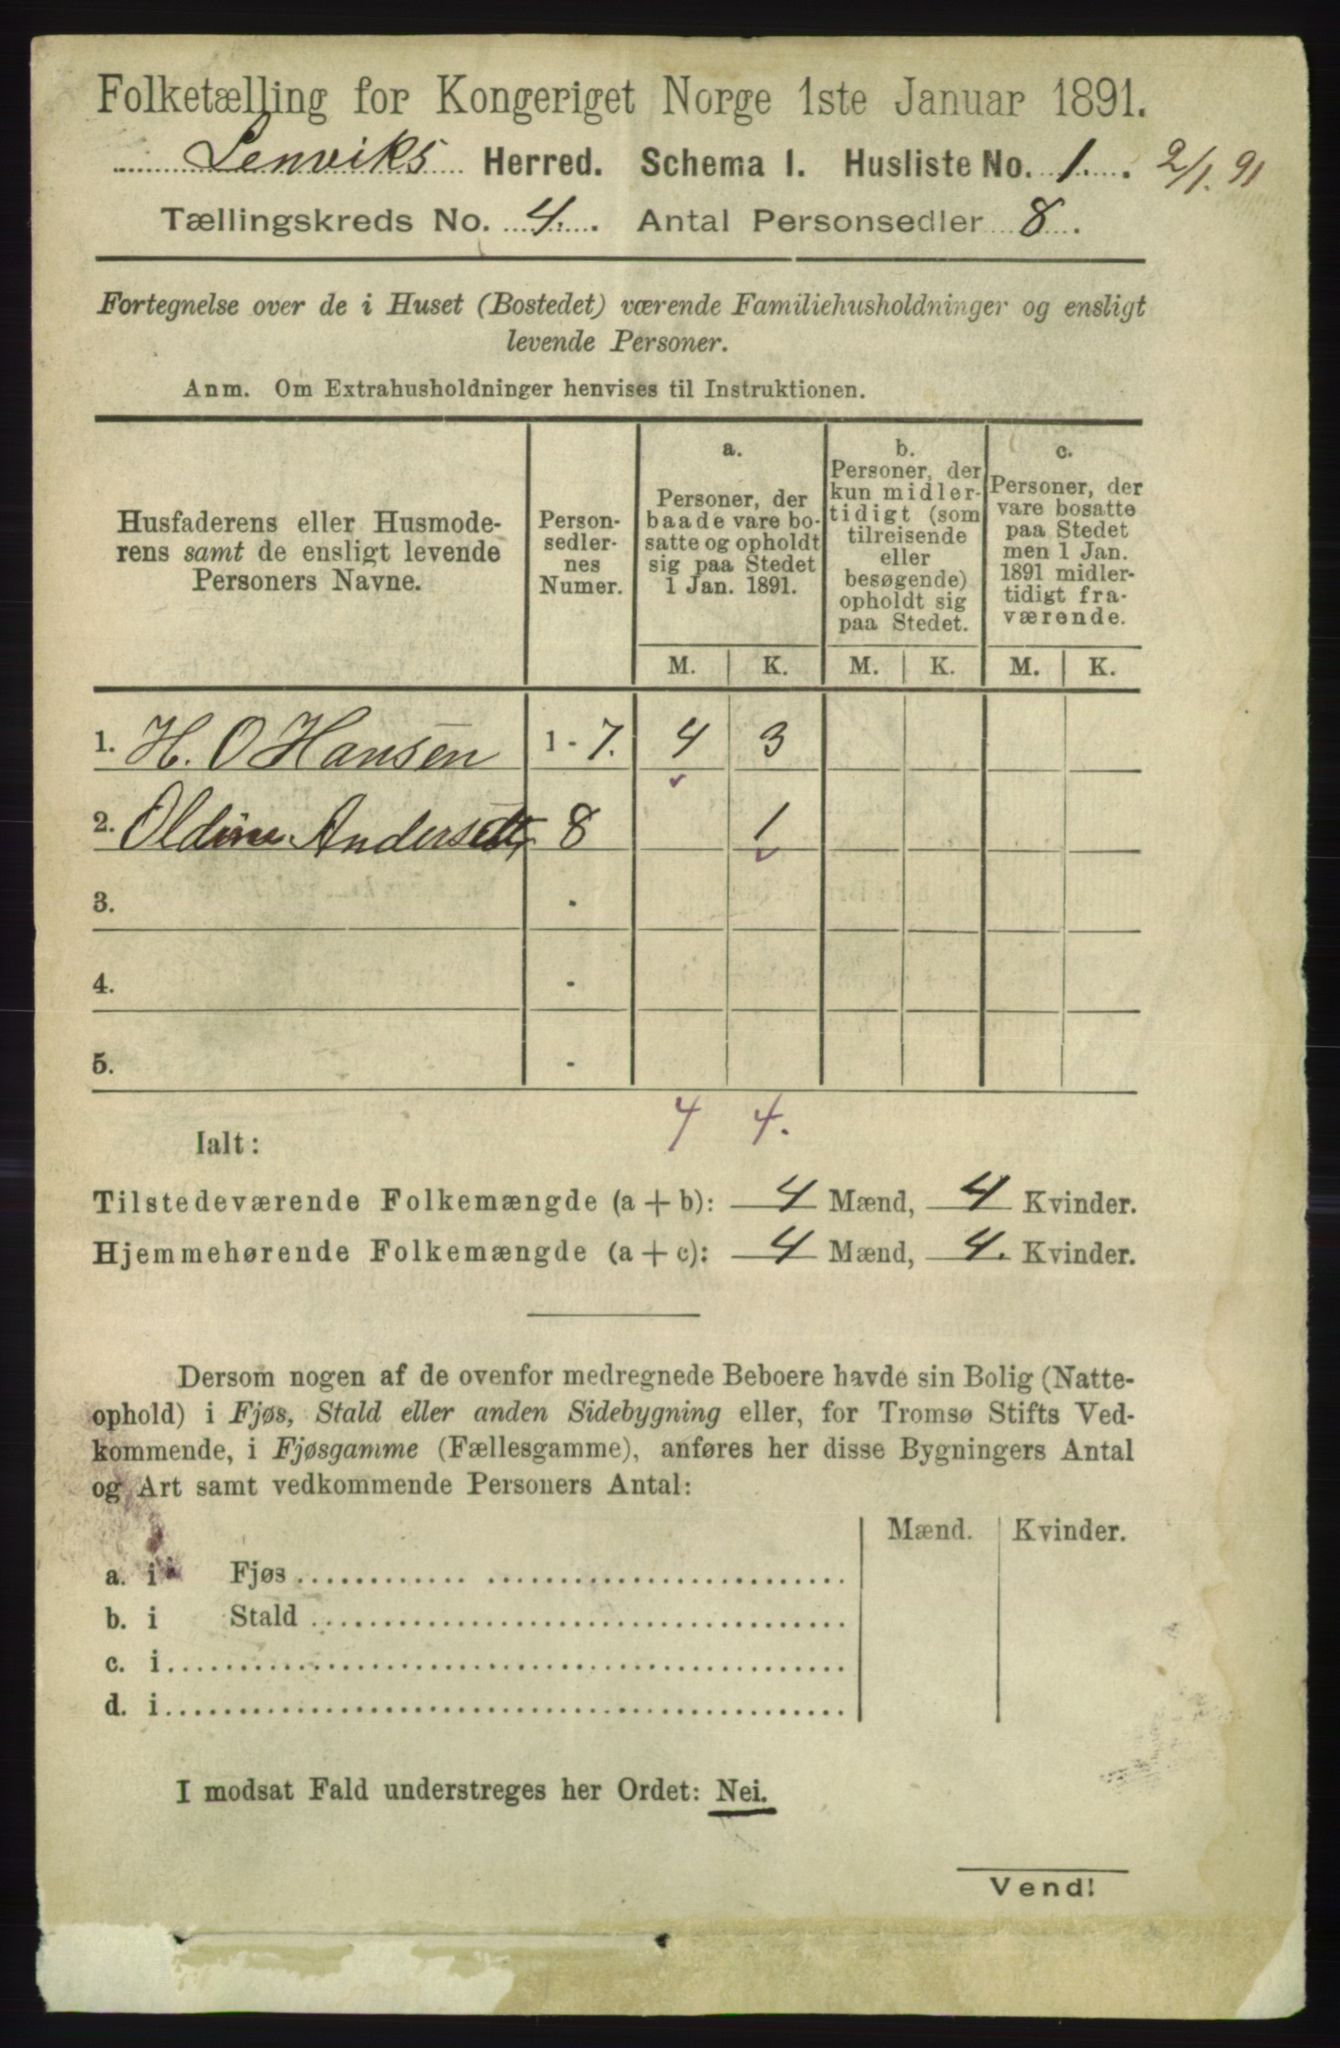 Folketælling for Kongeriget Norge 1ste Januar 1891.
Lenviks Herred. Schema I. Husliste No. 1. 2/1. 91
Tællingskreds No. 4. Antal Personsedler 8.
Fortegnelse over de i Huset (Bostedet) værende Familiehusholdninger og ensligt
levende Personer.
Anm. Om Extrahusholdninger henvises til Instruktionen.
Husfaderens eller Husmode-
rens samt de ensligt levende
Personers Navne.
Person-
sedler-
nes
Numer.
a.
Personer, der
baade vare bo-
satte og opholdt
sig paa Stedet
1 Jan. 1891.
b.
Personer, der
kun midler-
tidigt (som
tilreisende
eller
besøgende)
opholdt sig
paa Stedet.
c.
Personer, der
vare bosatte
paa Stedet
men 1 Jan.
1891 midler-
tidigt fra-
værende.
M. K. M. K. M. K.
1. H. O Hansen 1 - 7. 4 3
2. Oldine Andersdtr 8 1
3. -
4. -
5. -
4 4.
Ialt:
Tilstedeværende Folkemængde (a + b): 4 Mænd, 4 Kvinder.
Hjemmehørende Folkemængde (a + c): 4 Mænd, 4. Kvinder.
Dersom nogen af de ovenfor medregnede Beboere havde sin Bolig (Natte-
ophold) i Fjøs, Stald eller anden Sidebygning eller, for Tromsø Stifts Ved-
kommende, i Fjøsgamme (Fællesgamme), anføres her disse Bygningers Antal
og Art samt vedkommende Personers Antal:
Mænd. Kvinder.
a. i Fjøs
b. i Stald
c. i
d. i
I modsat Fald understreges her Ordet: Nei.
Vend!